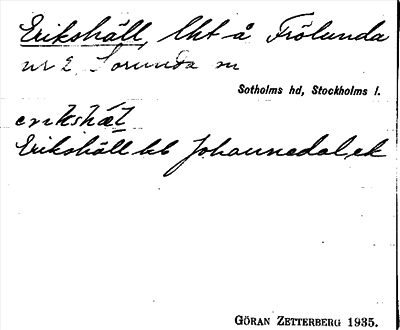 Erikshäll, lht å Frölunda
nr 2, Sorunda sn
Sotholms hd, Stockholms l.
erikshäl
Erikshäll hb Johannedal ek
GÖRAN ZETTERBERG 1935.